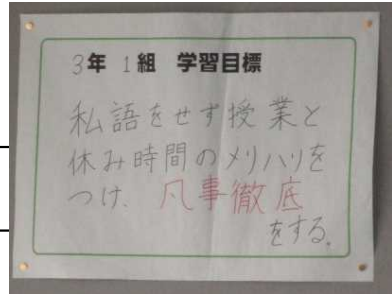 3年 1組 学習目標
私語をせず授業と
休み時間のメリハリを
つけ、凡事徹底
をする。